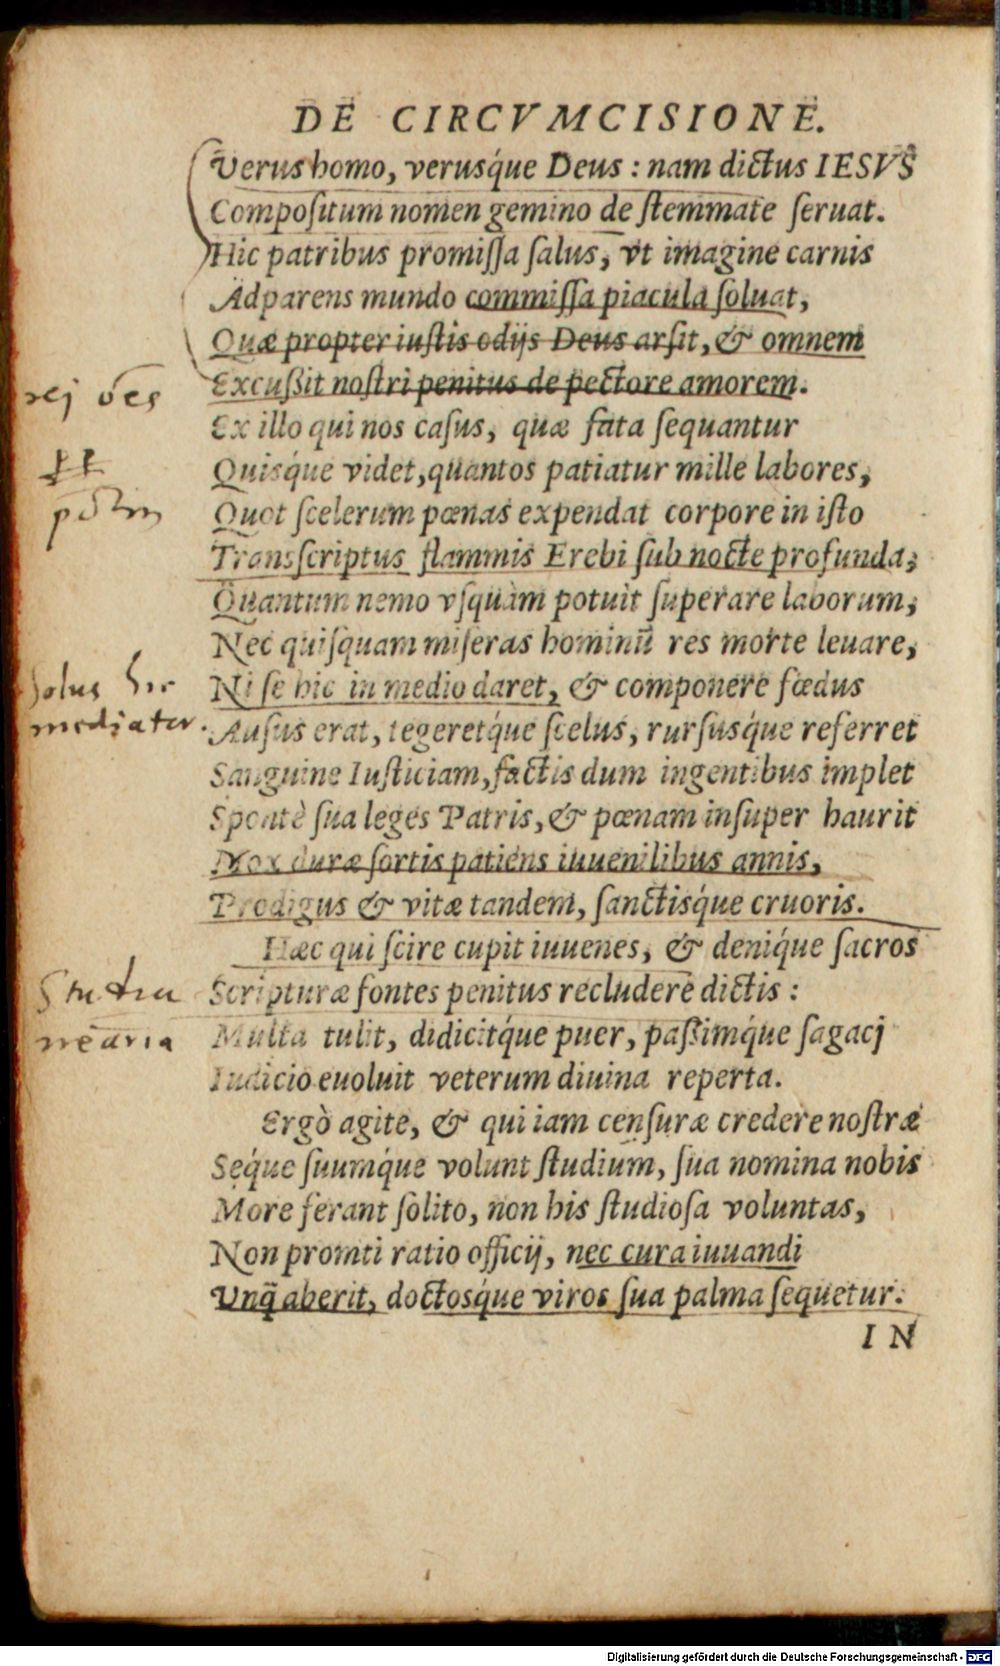 DE CIRCVMCISIONE.
Verus homo, verusq́ue Deus : nam dictus IESVS
Compoſitum nomen gemino de ſtemmate ſeruat.
Hic patribus promiſſa ſalus, vt imagine carnis
Adparens mundo commiſſa piacula ſoluat,
Quæ propter iuſtis odijs Deus arſit, & omnem
Excußit noſtri penitus de pectore amorem.
Ex illo qui nos caſus, quæ fata ſequantur
Quisq́ue videt, quantos patiatur mille labores,
Quot ſcelerum pœnas expendat corpore in iſto
Transſcriptus flammis Erebi ſub nocte profunda;
Quantum nemo vſquàm potuit ſuperare laborum,
Nec quiſquam miſeras hominū res morte leuare,
Ni ſe hic in medio daret, & componere fœdus
solus hic
mediator.
Auſus erat, tegeretq́ue ſcelus, rurſusq́ue referret
Sanguine Iuſticiam, factis dum ingentibus implet
Spontè ſua leges Patris, & pœnam inſuper haurit
Mox duræ ſortis patiens iuuenilibus annis,
Prodigus & vitæ tandem, ſanctisq́ue cruoris.
Hæc qui ſcire cupit iuuenes, & deniq́ue ſacros
Scripturæ fontes penitus recludere dictis :
Multa tulit, didicitq́ue puer, paßimq́ue ſagacj
Iudicio euoluit veterum diuina reperta.
Ergò agite, & qui iam cenſuræ credere noſtræ
Seq́ue ſuumq́ue volunt ſtudium, ſua nomina nobis
More ferant ſolito, non his ſtudioſa voluntas,
Non promti ratio officij, nec cura iuuandi
Unq̃ aberit, doctosq́ue viros ſua palma ſequetur.
IN
Digitalisierung gefördert durch die Deutsche Forschungsgemeinschaft - DFG